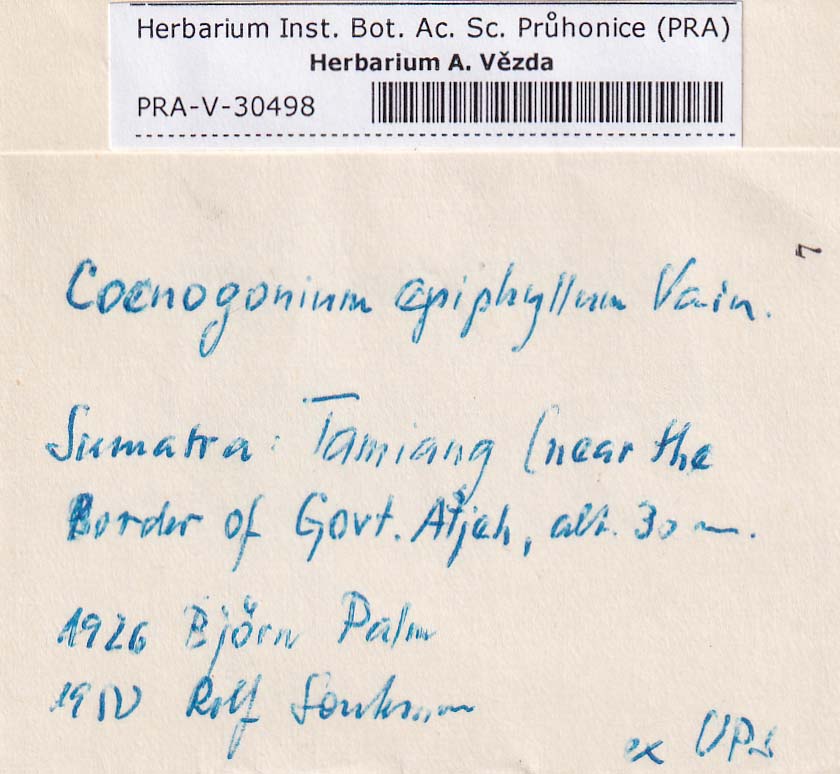 Herbarium Inst. Bot. Ac. Sc. Průhonice (PRA)
Herbarium A. Vězda
PRA-V-30498
7
Coenogonium epiphyllum Vain.
Sumatra: Tamiang (near the
Border of Govt. Atjeh, alt. 30 m.
1926 Björn Palm
Rolf
ex UPS